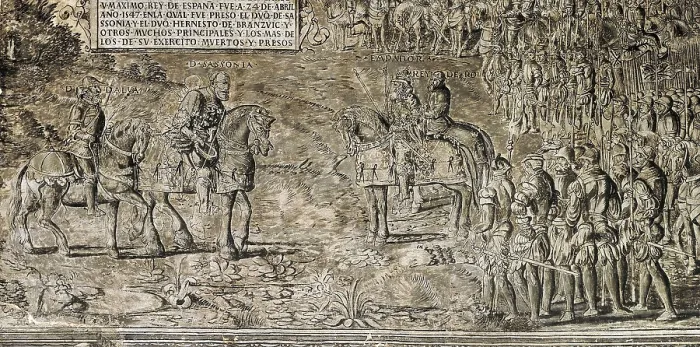 V MAXIMO, REY DE ESPAÑA FVE A 24 DE ABRIL
AÑO 1547 EN LA QVAL FVE PRESO EL DVQ̃ DE SA
SSONIA Y EL DVQ̃ HERNESTO DE BRANZVIC Y
OTROS MVCHOS PRINCIPALES Y LOS MAS DE
LOS DE SV EXERCITO MVERTOS Y PRESOS
D: SASSONIA
D: DALVA